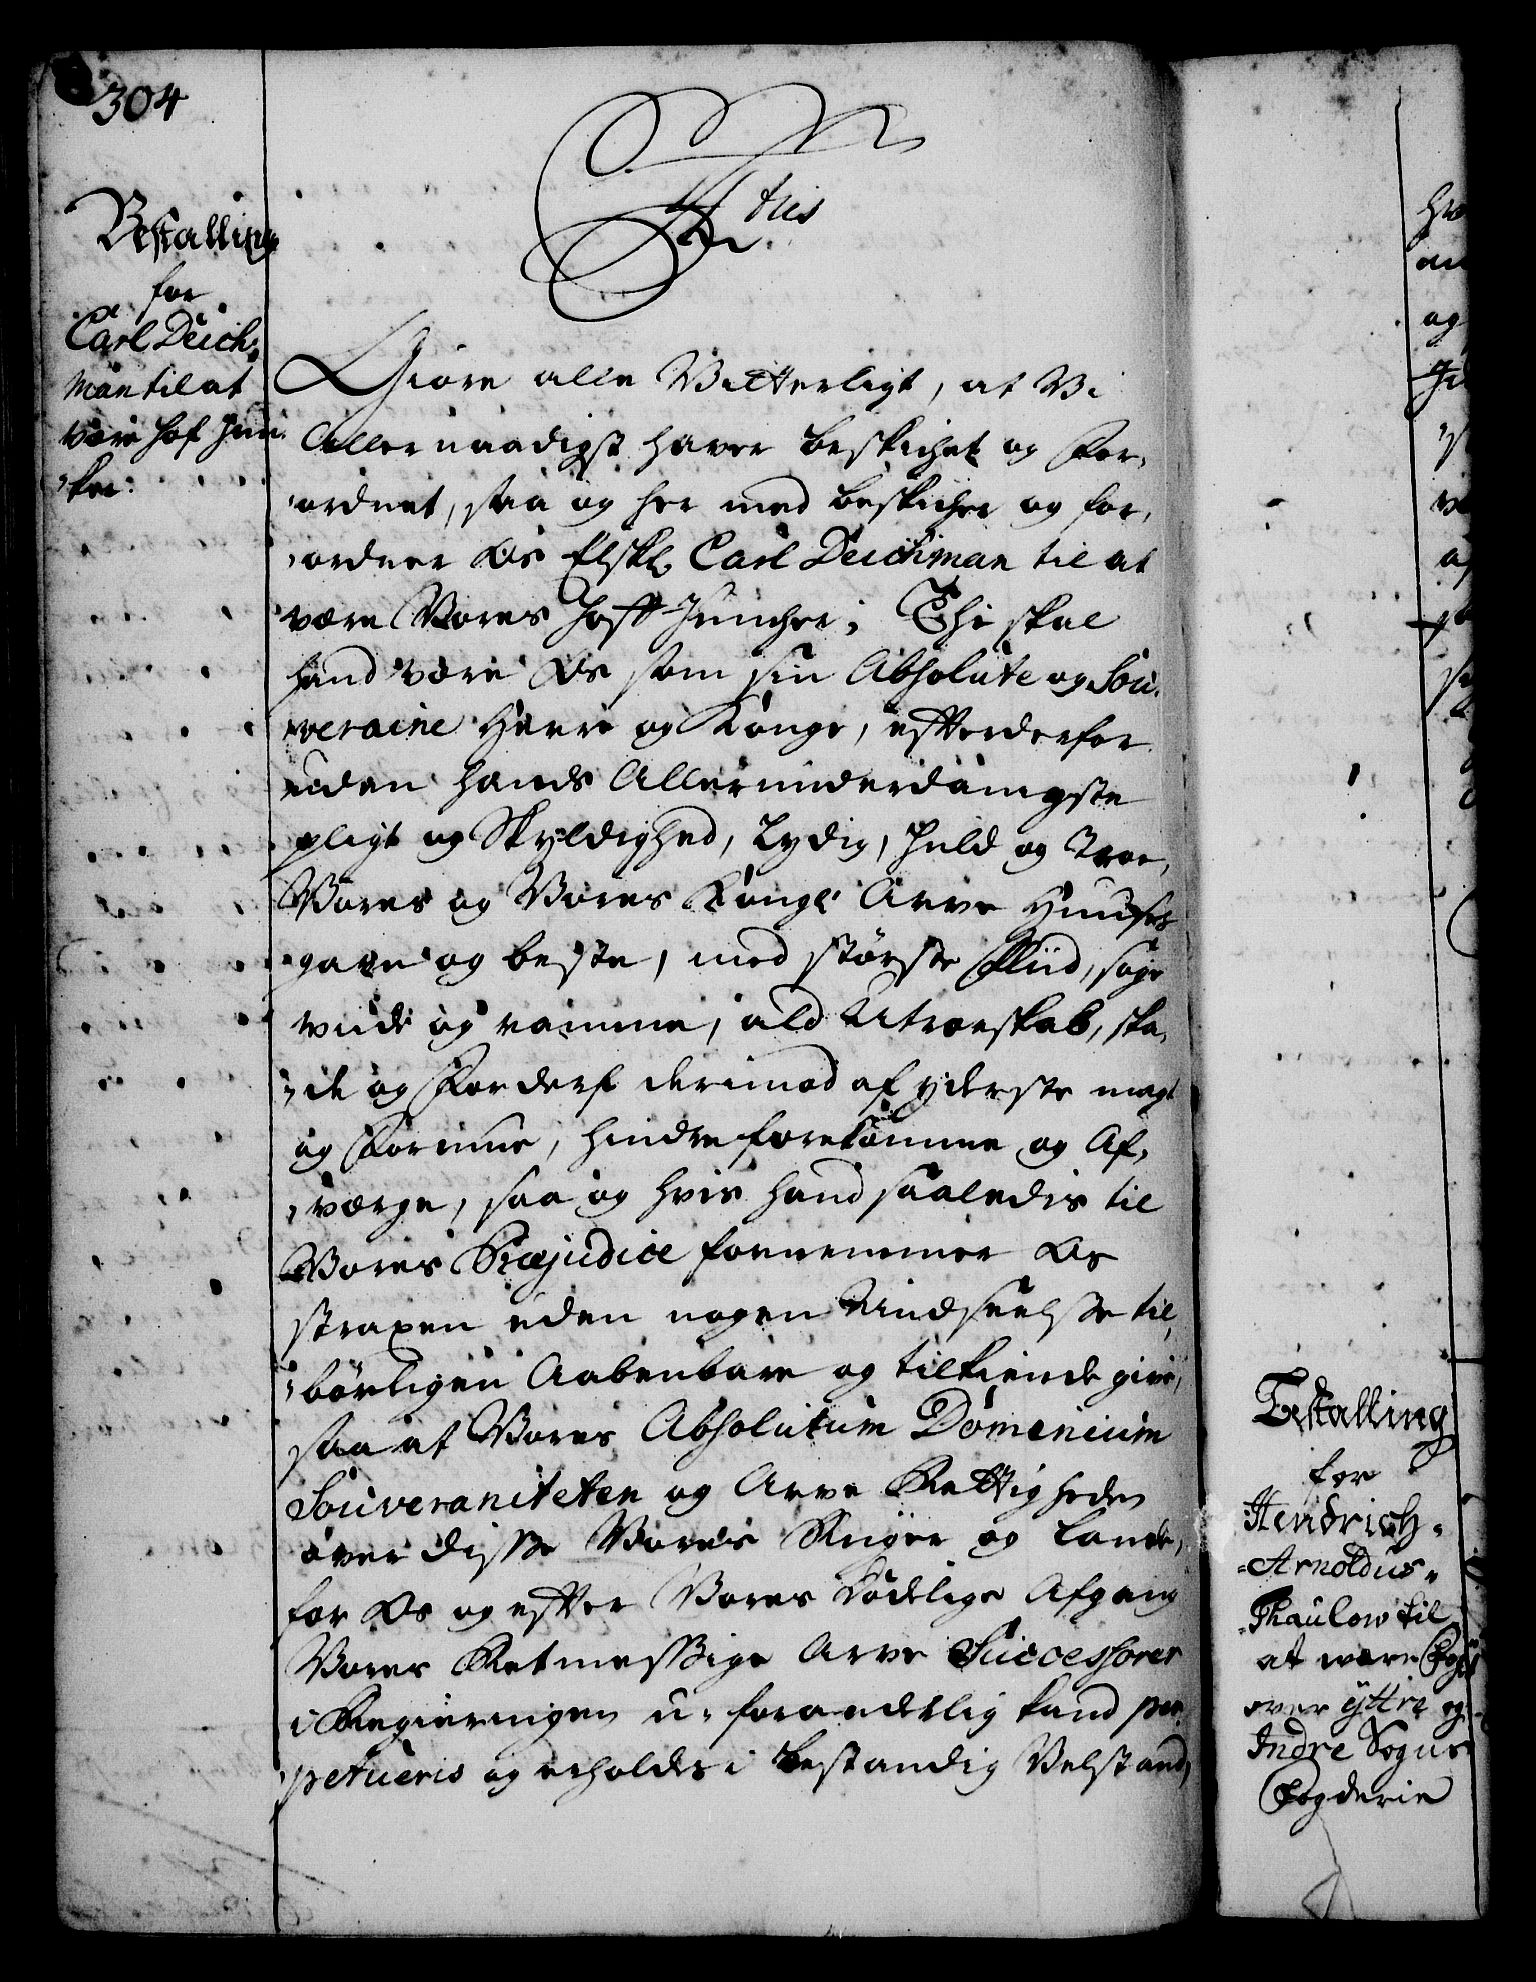 304
Bestalling
for
Carl Deich-
man til at
være Hof Jun-
ker.
F 4 tus
Giøre alle Vitterligt, at Vi
Allernaadigst haver beskichet og For-
ordnet, saa og her med beskicher og for-
ordner Os Elskl. Carl Deichman til at
være Vores Hoff Juncher; Thi skal
hand være Os som sin Absolute og Sou-
veraine Herre og Konge, effterderfor
uden hands Allerunderdanigste
pligt og Skyldighed, Lydig, Huld og Troe,
Vores og Vores Kongl. Arve Huuses
gavn og beste, med største Fliid, søge
viide og ramme, ald Utroeskab, ska-
de og Forderf derimod af yderste magt
og Formue, hindre forekomme og Af-
værge, saa og hvis hand saaledis til
Vores Præjudice fornemmer Os
straxen uden nogen Undseelse til-
børligen Aabenbare og tilkiende give,
saa at Vores Absolutum Domenium
Souveraniteten og Arve Rettigheden
over disse Vores Riiger og Lande,
for Os og effter Vores Dødelige Afgang
Vores Retmessige Arve Successorer
i Regieringen u-foranderlig kand per-
petueris og erholdes i bestandig Velstand,
Bestalling
for
Hendrich
Arnoldus
Thaulow til
at være Fogt
over yttre og
Indre Sogns
Fogderie